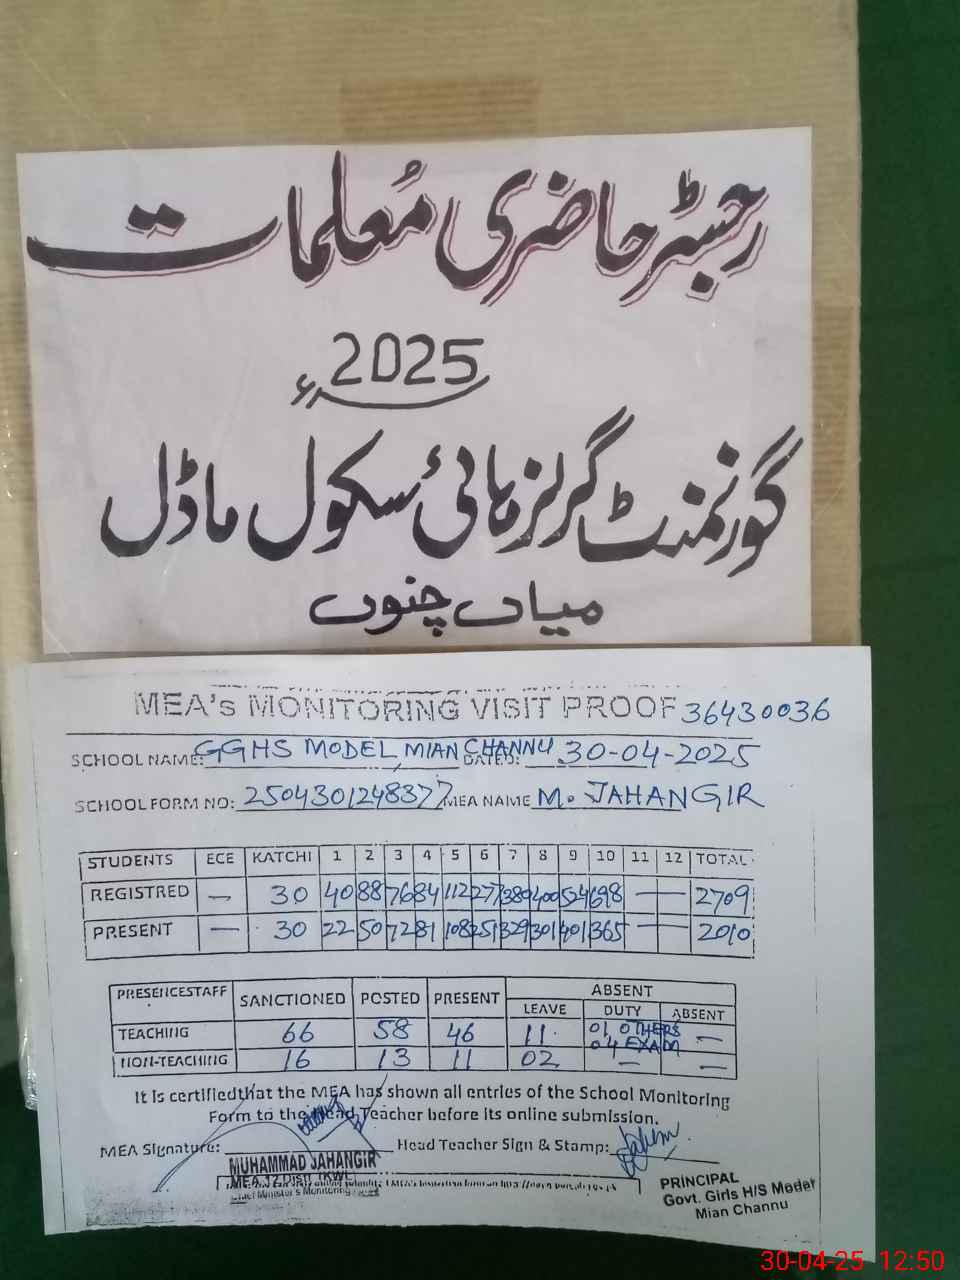 رجسٹر حاضری مُعلمات
2025ء
گورنمنٹ گرلز ہائی سکول ماڈل
میاں چنوں
MEA's MONITORING VISIT PROOF 36430036
SCHOOL NAME: GGHS MODEL, MIAN CHANNU DATED: 30-04-2025
SCHOOL FORM NO: 2504301248377 MEA NAME M. JAHANGIR
STUDENTS ECE KATCHI 1 2 3 4 5 6 7 8 9 10 11 12 TOTAL
REGISTRED — 30 40 88 76 84 112 277 380 400 524 698 — — 2709
PRESENT — 30 22 50 72 81 108 251 329 301 401 365 — — 2010
PRESENCESTAFF SANCTIONED POSTED PRESENT ABSENT
LEAVE DUTY ABSENT
TEACHING 66 58 46 11 01 OTHERS 04 EXAM —
NON-TEACHING 16 13 11 02 — —
It is certifiedthat the MEA has shown all entries of the School Monitoring
Form to the Head Teacher before its online submission.
MEA Signature: Head Teacher Sign & Stamp:
MUHAMMAD JAHANGIR
MEA 12 Distt (KWL)
Chief Minister's Monitoring
PRINCIPAL
Govt. Girls H/S Model
Mian Channu
30-04-25 12:50